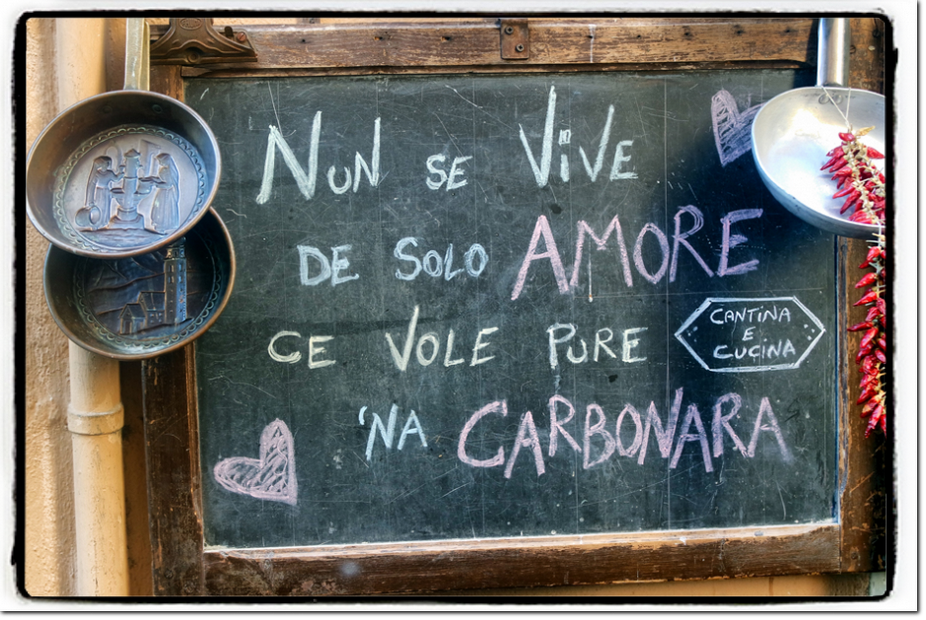 NUN SE ViVE
DE SOLO AMORE
CE VOLE PURE
CANTINA
E
CUCINA
'NA CARBONARA